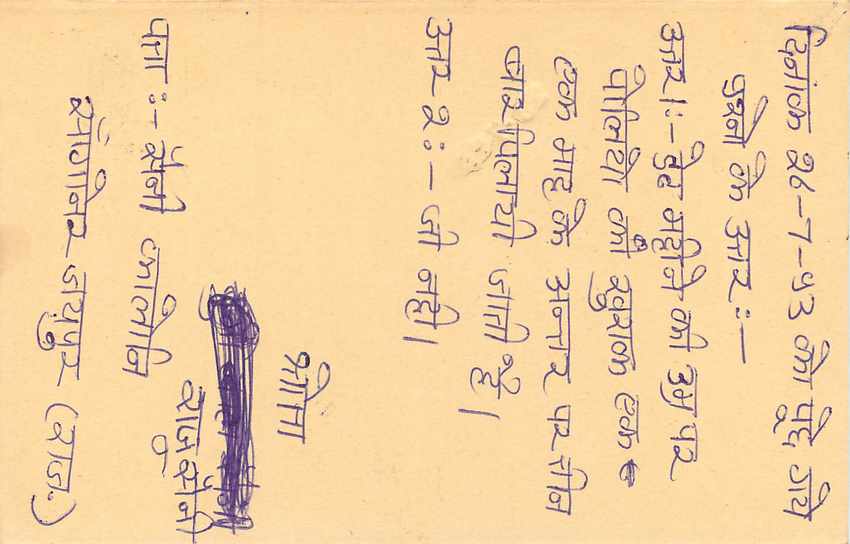 दिनांक 26-7-93 को पुछे गये
प्रश्नो के उत्तर :-
उत्तर 1:- डेढ महीने की उम्र पर
पोलियो की खुराक एक
एक माह के अन्तर पर तीन
बार पिलायी जाती है।
उत्तर 2:- जी नही।
भीमा
राज सैनी
पता :- सैनी कालोनि
सांगानेर जयपुर (राज.)